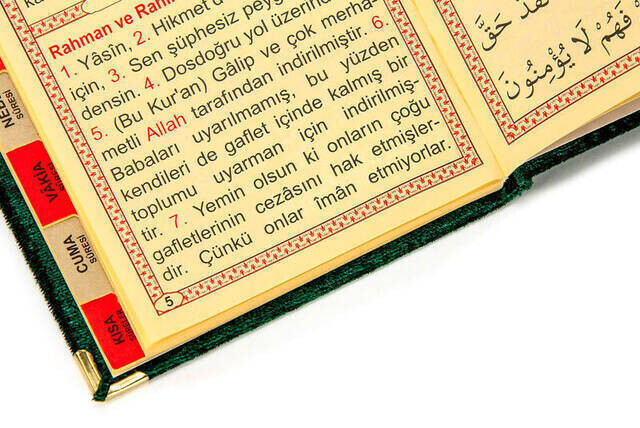 Rahman ve
1. Yâsîn, 2. Hikmet
için, 3. Sen şüphesiz
densin. 4. Dosdoğru yol üzerinde
5. (Bu Kur'an) Gâlip ve çok merha-
metli Allah tarafından indirilmiştir. 6.
Babaları uyarılmamış, bu yüzden
kendileri de gaflet içinde kalmış bir
toplumu uyarman için indirilmiş-
tir. 7. Yemin olsun ki onların çoğu
gafletlerinin cezâsını hak etmişler-
dir. Çünkü onlar îmân etmiyorlar.
5
SÛRESİ
VÂKIA
SÛRESİ
CUMA
SÛRESİ
KISA
SÛRELER
حَقَّ
فَهُمْ لَا يُؤْمِنُونَ